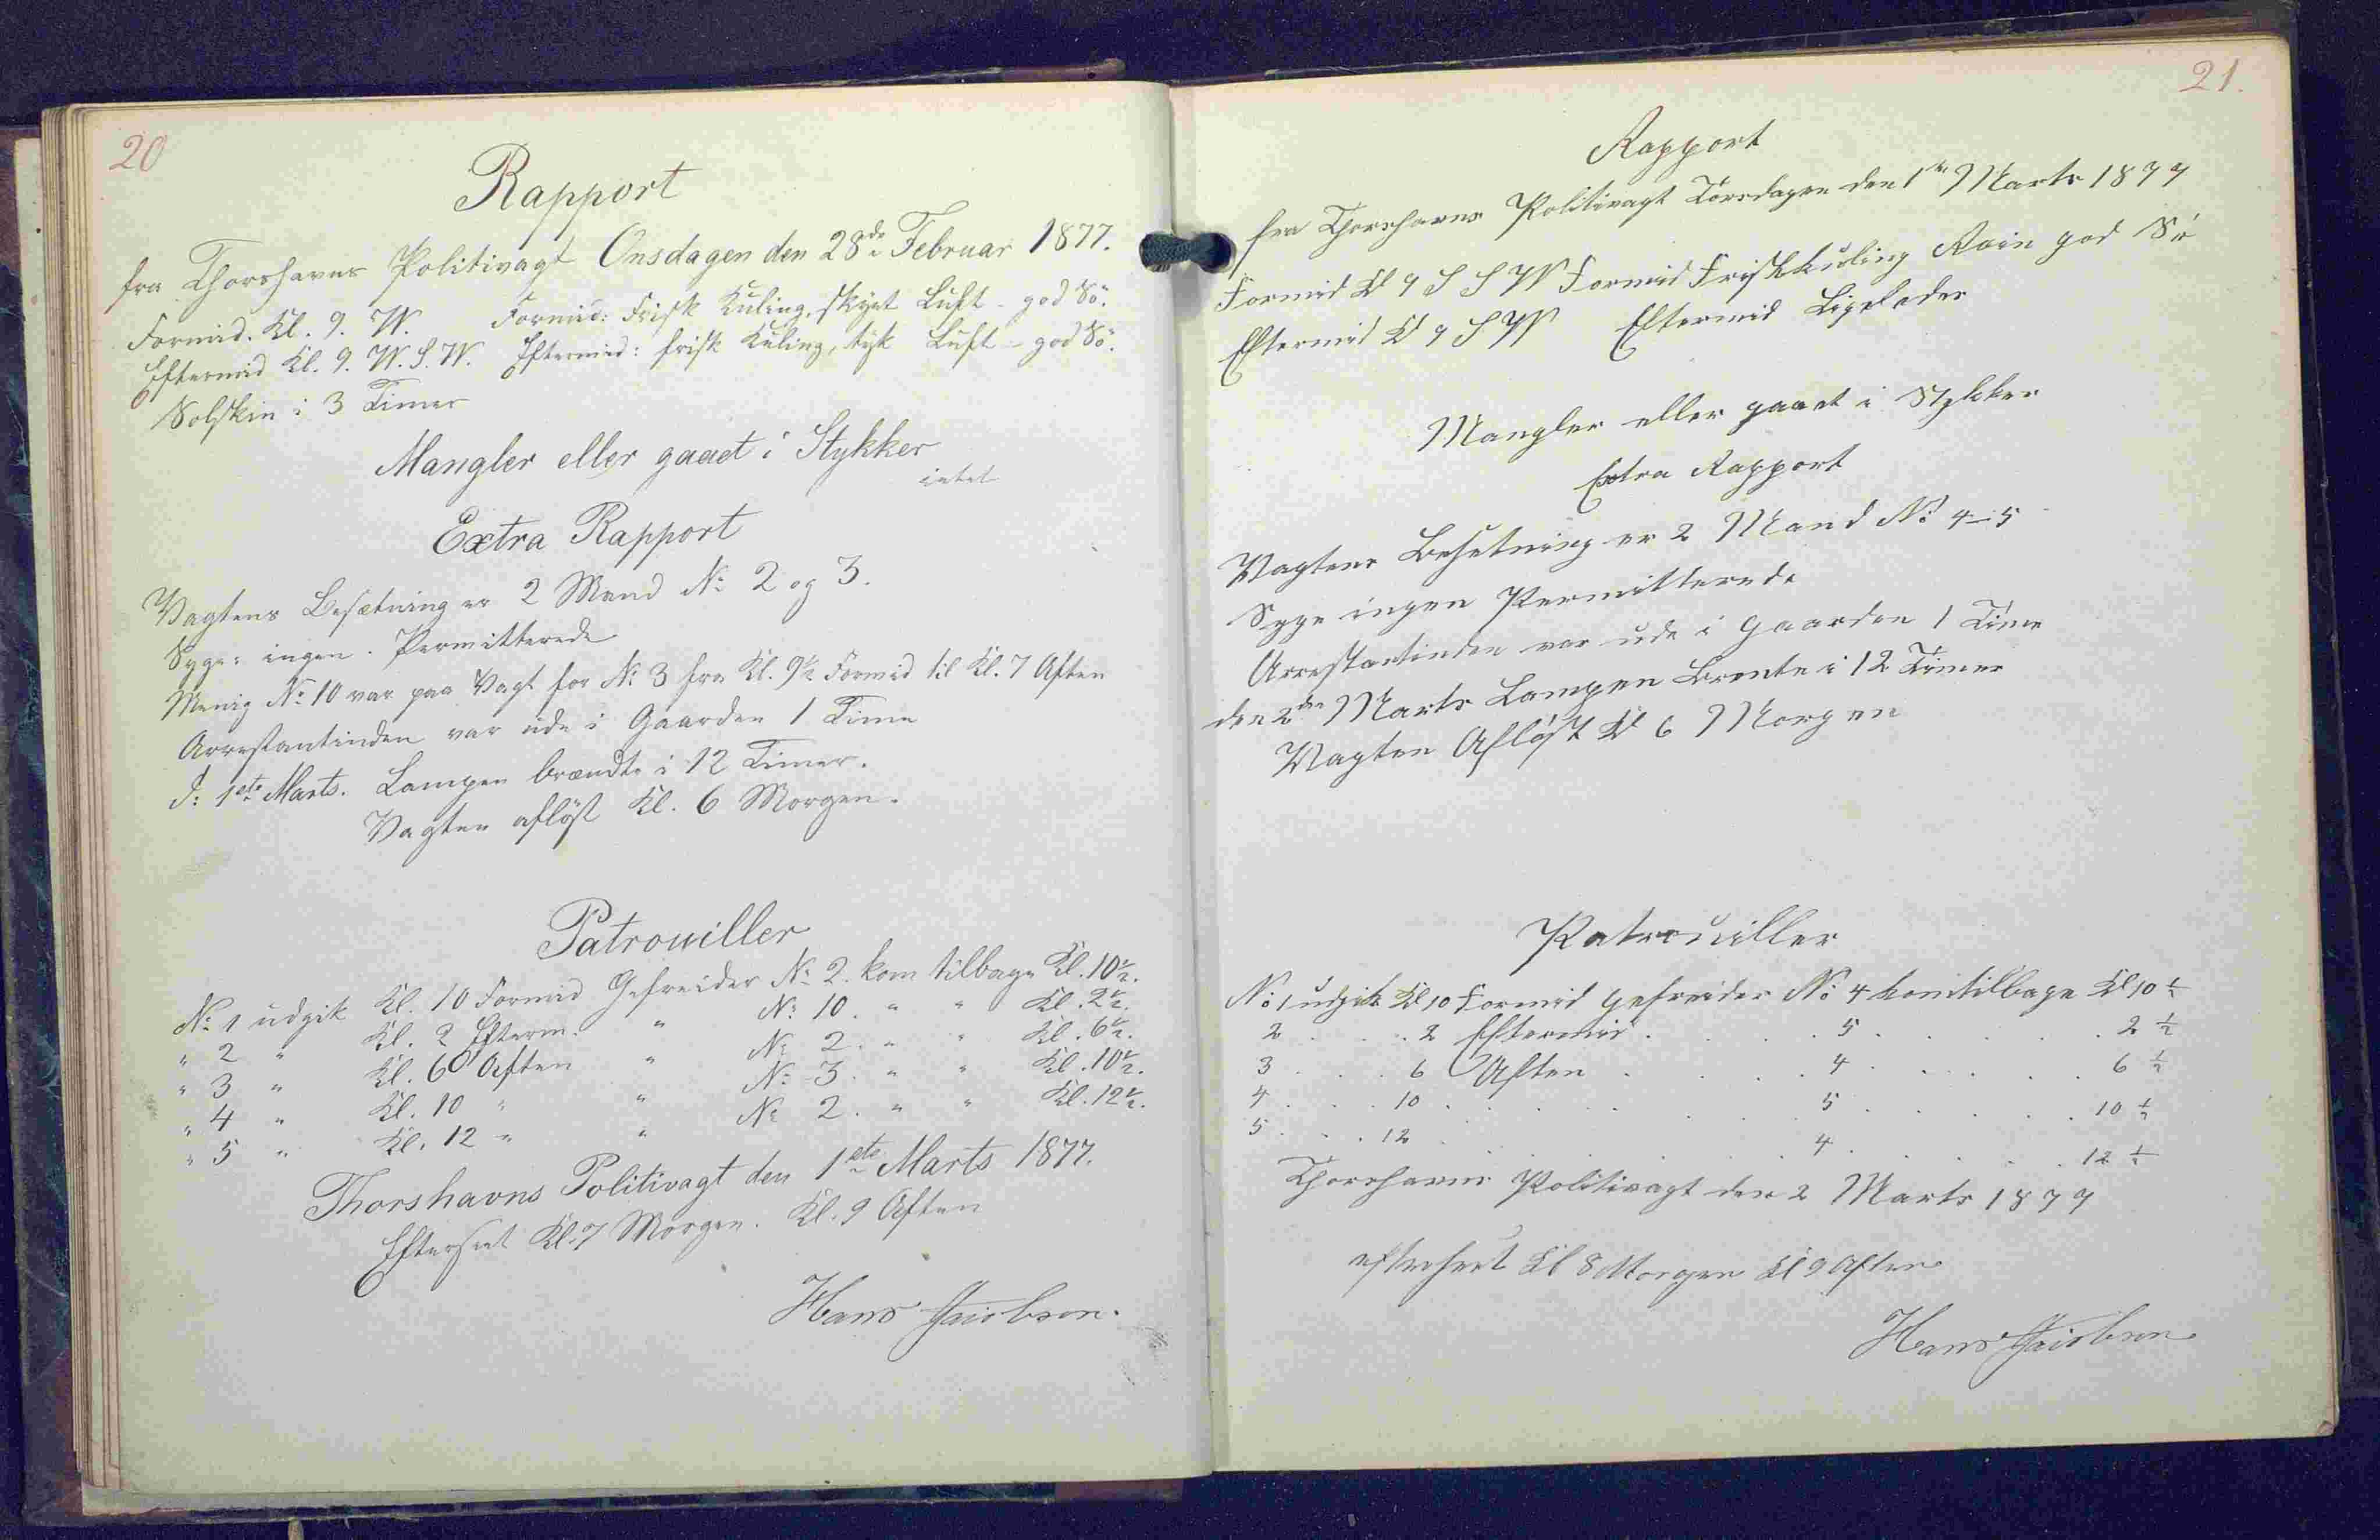 20
Rapport
fra Thorshavns Politivagt Onsdagen den 28de Februar 1877.
Formid. Kl. 9. W. Formid: Frisk Kuling, skyet Luft - god Sö.
Eftermid Kl. 9. W. S. W. Eftermid: frisk Kuling, tyk Luft - god Sö.
Solskin i 3 Timer
Mangler eller gaaet i Stykker
intet
Extra Rapport
Vagtens Besætning er 2 Mand No 2 og 3.
Syge: ingen. Permitterede
Menig No 10 var paa Vagt for No 3 fra Kl. 9½ Formid til Kl. 7 Aften
Arrestantinden var ude i Gaarden 1 Time
d: 1ste Marts. Lampen brændte i 12 Timer.
Vagten aflöst Kl. 6 Morgen.
Patrouiller
No 1 udgik Kl. 10 Formid Gefreider No 2. kom tilbage Kl. 10½.
" 2 " Kl. 2 Efterm. " No 10. " " Kl. 2½.
" 3 " Kl. 6 Aften " No 2. " " Kl. 6½.
" 4 " Kl. 10 " " No 3. " " Kl. 10½.
" 5 " Kl. 12 " " No 2. " " Kl. 12½.
Thorshavns Politivagt den 1ste Marts 1877.
Efterseet Kl. 7 Morgen. Kl. 9 Aften
Hans Jacobsen.
21.
Rapport
fra Thorshavns Politivagt Torsdagen den 1te Marts 1877
Formid Kl 9 S S W Formid Friskkuling Rein god Sö
Eftermid Kl 9 S W Eftermid Ligeledes
Mangler eller gaaet i Stykker
Extra Rapport
Vagtens Besetning er 2 Mand No 4-5
Syge ingen Permitterede
Arrestantinden var ude i Gaarden 1 Time
den 2den Marts Lampen Brente i 12 Timer
Vagten Aflöst Kl 6 Morgen
Patrouiller
No 1 udgik Kl 10 Formid gefreider No 4 komtilbage Kl 10 ½
2 . . . 2 Eftermid . . . 5 . . . . . 2 ½
3 . . . 6 Aften . . . . 4 . . . . . 6 ½
4 . . . 10 . . . . . . 5 . . . . . 10 ½
5 . . . 12 . . . . . . 4 . . . . . 12 ½
Thorshavns Politivagt den 2 Marts 1877
efterseet Kl 8 Morgen Kl 9 Aften
Hans Jacobsen